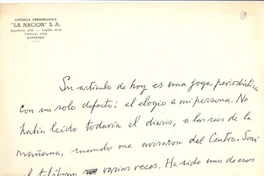 EMPRESA PERIODISTICA
"LA NACION" S. A.
SANTIAGO
Su artículo de hoy es una joya periodística
con un solo defecto: el elogio a mi persona. No
había leído todavía el diario, a las seis de la
mañana, cuando me avisaron del Centro. Sonó
el teléfono varias veces. Ha sido uno de esos